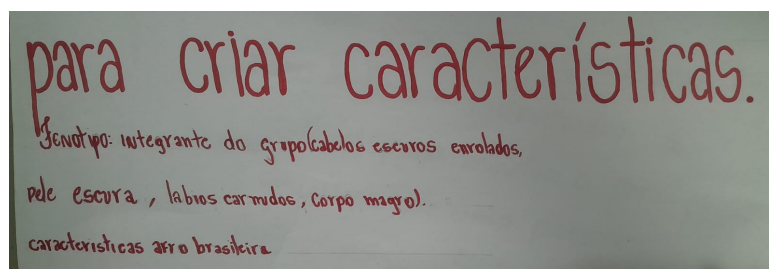 para criar características.
Fenotipo: integrante do grupo(cabelos escuros enrolados,
pele escura, labios carnudos, corpo magro).
caracteristicas afro brasileira